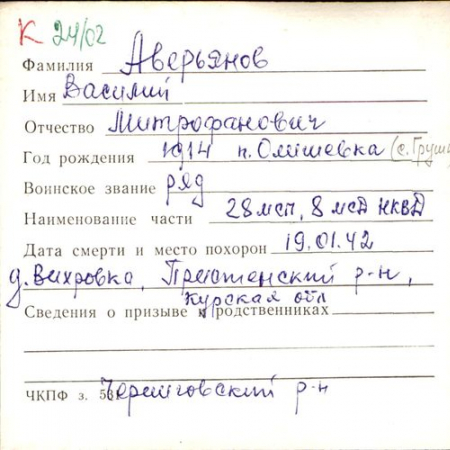 К 24/02
Фамилия Аверьянов
Имя Василий
Отчество Митрофанович
Год рождения 1914 п. Олишевка (с. Груш
Воинское звание ряд
Наименование части 28 мсп, 8 мсд НКВД
Дата смерти и место похорон 19.01.42
д. Вихровка, Пристенский р-н,
Курская обл
Сведения о призыве и родственниках
ЧКПФ з. 53 Черниговский р-н